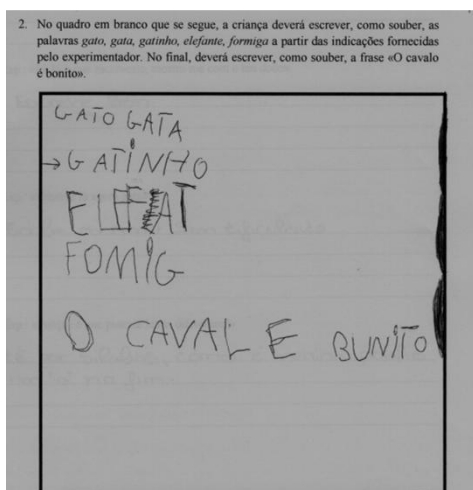 2. No quadro em branco que se segue, a criança deverá escrever, como souber, as
palavras gato, gata, gatinho, elefante, formiga a partir das indicações fornecidas
pelo experimentador. No final, deverá escrever, como souber, a frase «O cavalo
é bonito».
GATO GATA
→GATiNHO
ELEFAT
FOMiG
O CAVAL E BUNiTO